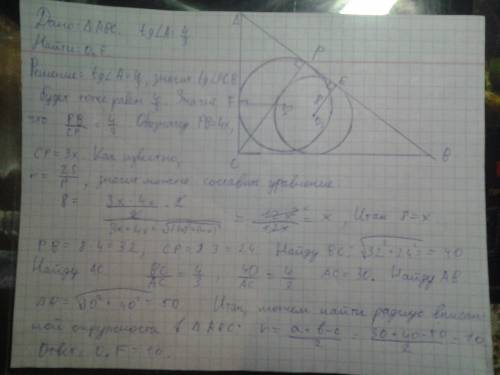 Дано: ΔABC. tg∠A=4/3
Найти: O₁F.
Решение: tg∠A=4/3, значит tg∠PCB
будет тоже равен 4/3. Значит
что PB/CP = 4/3 Обозначу PB=4x,
CP=3x. Как известно,
r = 2S/P, значит можно составить уравнение
8 = = = x, Итак 8=x
PB=8·4=32, CP=8·3=24. Найду BC: √32²+24² = 40
Найду AC BC/AC = 4/3, AC=30. Найду AB
AB= √30²+40² = 50 Итак, можем найти радиус вписан-
ной окружности в ΔABC: r = a+b-c/2 = 30+40-50/2 = 10
Ответ: O₁F=10.
A
P
F
C
B